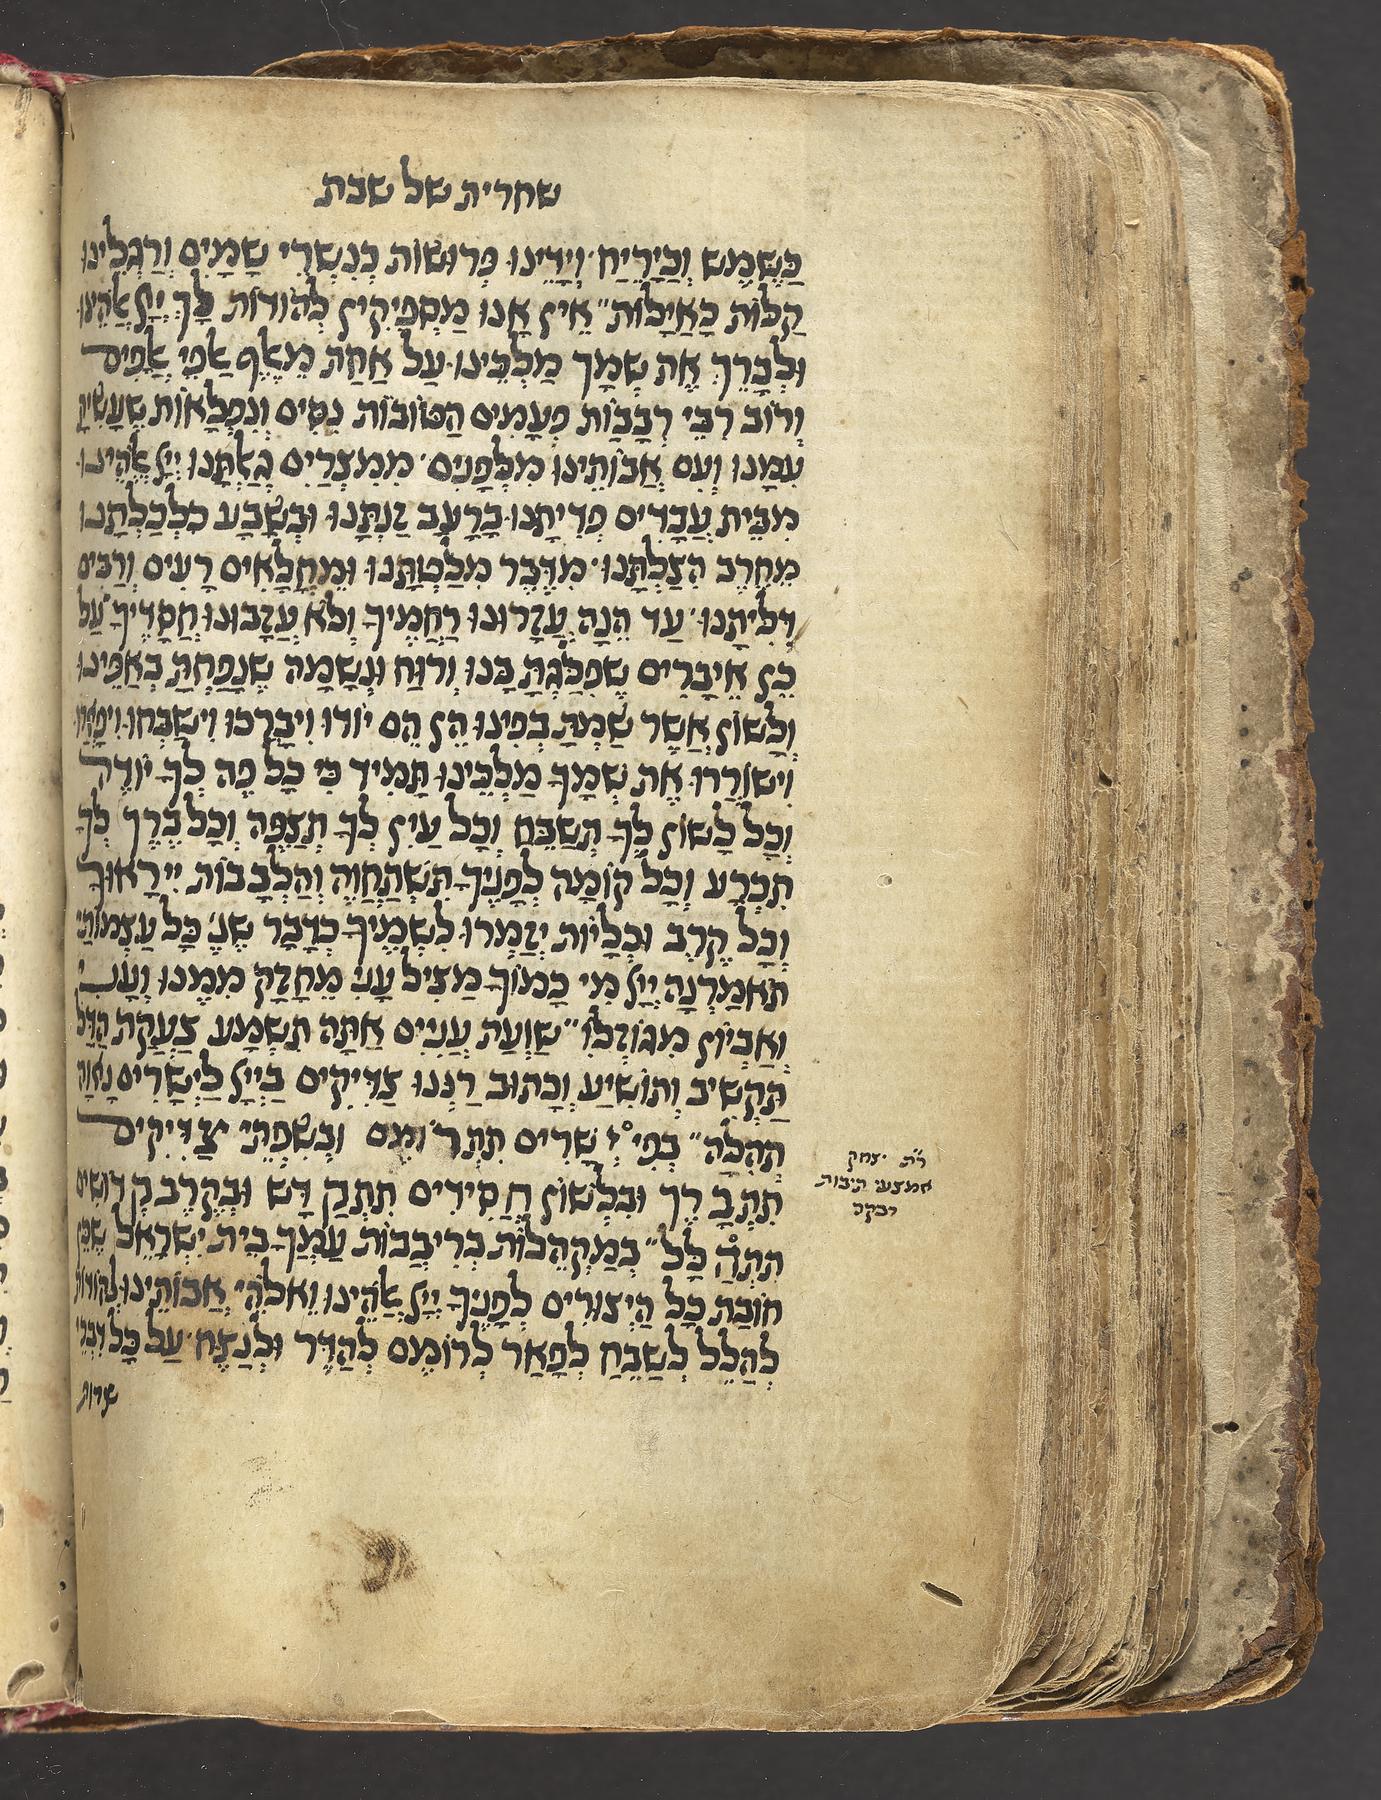 שחרית של שבת
כַּשֶּׁמֶשׁ וְכַיָּרֵיחַ וְיָדֵינוּ פְּרוּשׂוֹת כְּנִשְׁרֵי שָׁמָיִם וְרַגְלֵינוּ
קַלּוֹת כָּאַיָּלוֹת אֵין אָנוּ מַסְפִּיקִין לְהוֹדוֹת לָךְ
וּלְבָרֵךְ אֶת שְׁמָךְ מַלְכֵּינוּ עַל אַחַת מֵאֶלֶף אַפֵי אֲפִים
וְרוֹב רִבֵּי רְבָבוֹת פְּעָמִים הַטּוֹבוֹת נִסִּים וְנִפְלָאוֹת שֶׁעָשִׂיתָ
עִמָּנוּ וְעִם אֲבוֹתֵינוּ מִלְּפָנִים מִמִּצְרַיִם גְּאַלְתָּנוּ
מִבֵּית עֲבָדִים פְּדִיתָנוּ בָּרָעָב זַנְתָּנוּ וּבְשָׂבָע כִּלְכַּלְתָּנוּ
מֵחֶרֶב הִצַּלְתָּנוּ מִדֶּבֶר מִלַּטְתָּנוּ וּמֵחֳלָאִים רָעִים וְרַבִּים
דִּלִּיתָנוּ עַד הֵנָּה עֲזָרוּנוּ רַחֲמֶיךָ וְלֹא עֲזָבוּנוּ חֲסָדֶיךָ עַל
כֵּן אֵיבָרִים שֶׁפִּלַּגְתָּ בָּנוּ וְרוּחַ וּנְשָׁמָה שֶׁנָּפַחְתָּ בְּאַפֵּינוּ
וְלָשׁוֹן אֲשֶׁר שַׂמְתָּ בְּפִינוּ הֵן הֵם יוֹדוּ וִיבָרְכוּ וִישַׁבְּחוּ וִיפָאֲרוּ
וִישׁוֹרְרוּ אֶת שְׁמָךְ מַלְכֵּינוּ תָּמִיד כִּי כָל פֶּה לְךָ יוֹדֶה
וְכָל לָשׁוֹן לְךָ תְשַׁבֵּחַ וְכָל עַיִן לְךָ תְצַפֶּה וְכָל בֶּרֶךְ לְךָ
תִכְרַע וְכָל קוֹמָה לְפָנֶיךָ תִּשְׁתַּחֲוֶה וְהַלְּבָבוֹת יִירָאוּךָ
וְכָל קֶרֶב וּכְלָיוֹת יְזַמְּרוּ לִשְׁמֶיךָ כַּדָּבָר שֶׁנֶּ' כָּל עַצְמוֹתַי
תֹּאמַרְנָה מִי כָמוֹךָ מַצִּיל עָנִי מֵחָזָק מִמֶּנּוּ וְעָנִי
וְאֶבְיוֹן מִגּוֹזְלוֹ שַׁוְעַת עֲנִיִּים אַתָּה תִשְׁמַע צַעֲקַת הַדַּל
תַּקְשִׁיב וְתוֹשִׁיעַ וְכָתוּב רַנְּנוּ צַדִּיקִים לַיְשָׁרִים נָאוָה
תְהִלָּה בְּפִי יְשָׁרִים תִּתְרוֹמָם וּבְשִׂפְתֵי צַדִּיקִים
תִּתְבָּרֵךְ וּבִלְשׁוֹן חֲסִידִים תִּתְקַדָּשׁ וּבְקֶרֶב קְדוֹשִׁים
תִּתְהַלָּל בְּמַקְהֵלוֹת בְּרִיבְבוֹת עַמְּךָ בֵּית יִשְׂרָאֵל שֶׁכֵּן
חוֹבַת כָּל הַיְצוּרִים לְפָנֶיךָ וֵאלֹהֵי אֲבוֹתֵינוּ לְהוֹדוֹת
לְהַלֵּל לְשַׁבֵּחַ לְפָאֵר לְרוֹמֵם לְהַדֵּר וּלְנַצֵּחַ עַל כָּל דִּבְרֵי
שירות
ר"ת יצחק
אמצעי תיבות
רבקה